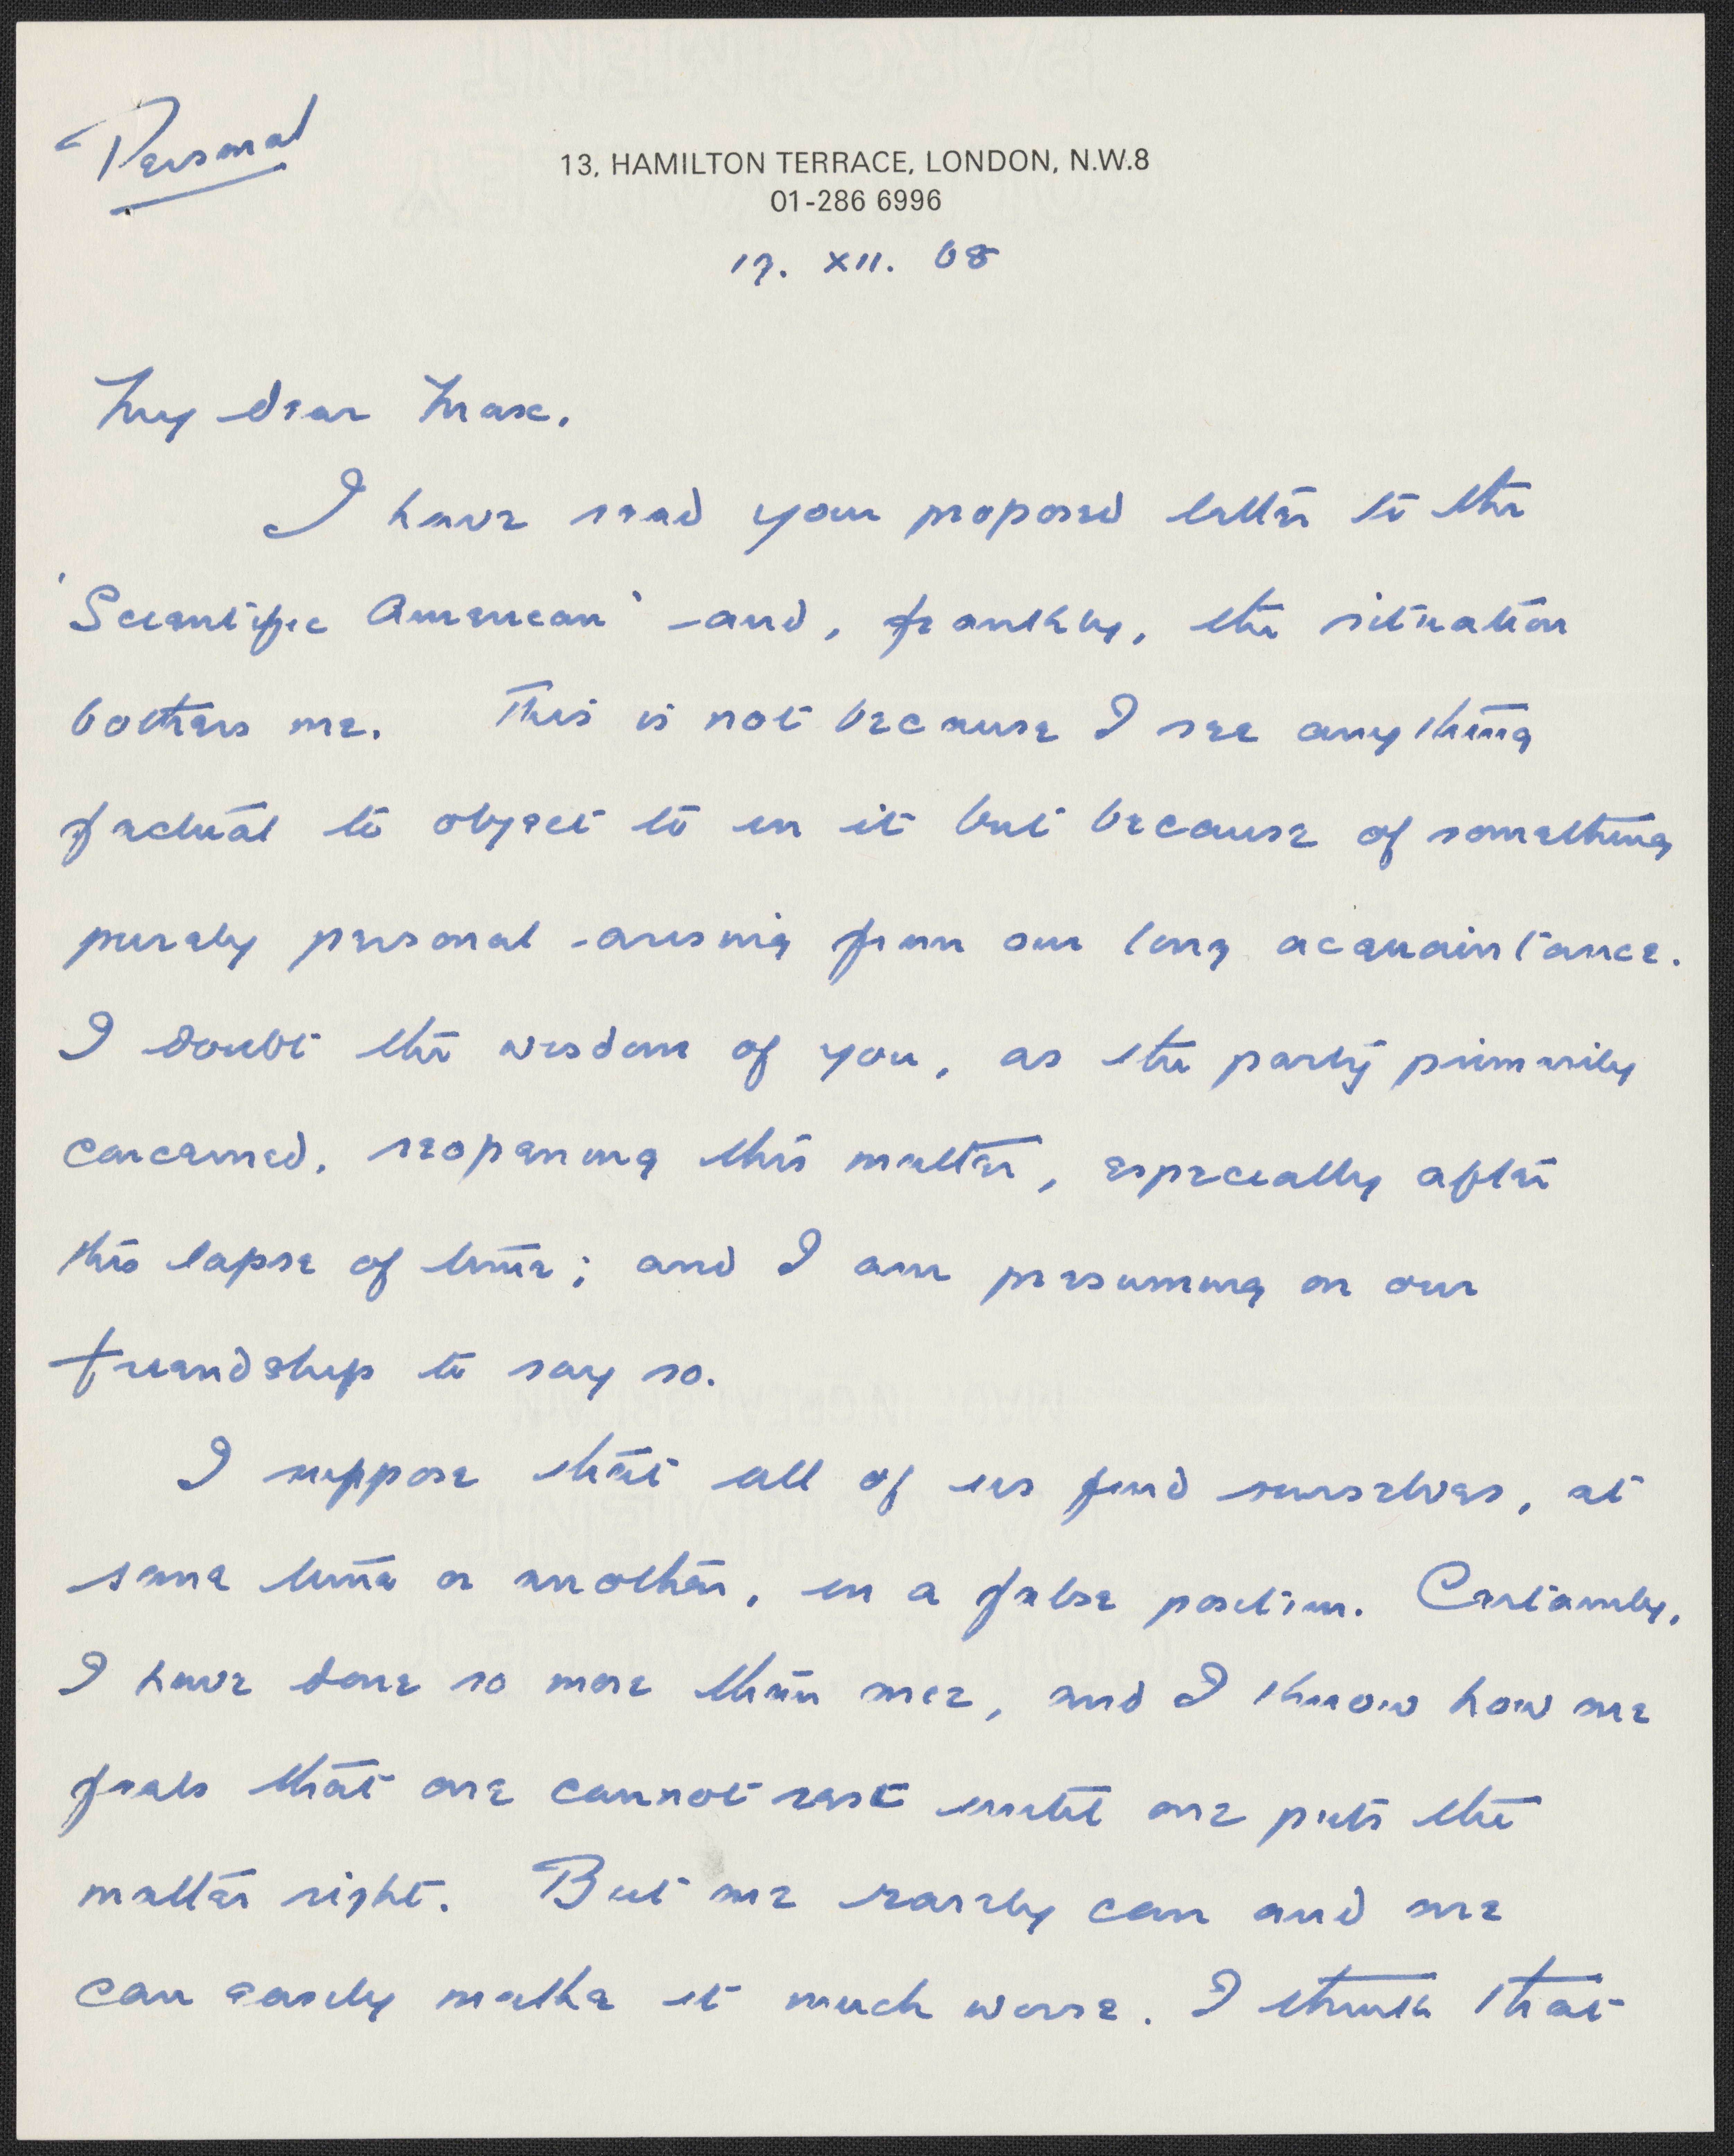 Personal
13, HAMILTON TERRACE, LONDON, N.W.8
01-286 6996
17. XII. 68
My dear Max,
I have read your proposed letter to the
'Scientific American' - and, frankly, the situation
bothers me. This is not because I see anything
factual to object to in it but because of something
purely personal - arising from our long acquaintance.
I doubt the wisdom of you, as the party primarily
concerned, reopening this matter, especially after
this lapse of time; and I am presuming on our
friendship to say so.
I suppose that all of us find ourselves, at
some time or another, in a false position. Certainly,
I have done so more than once, and I know how one
feels that one cannot rest until one puts the
matter right. But one rarely can and one
can easily make it much worse. I think that